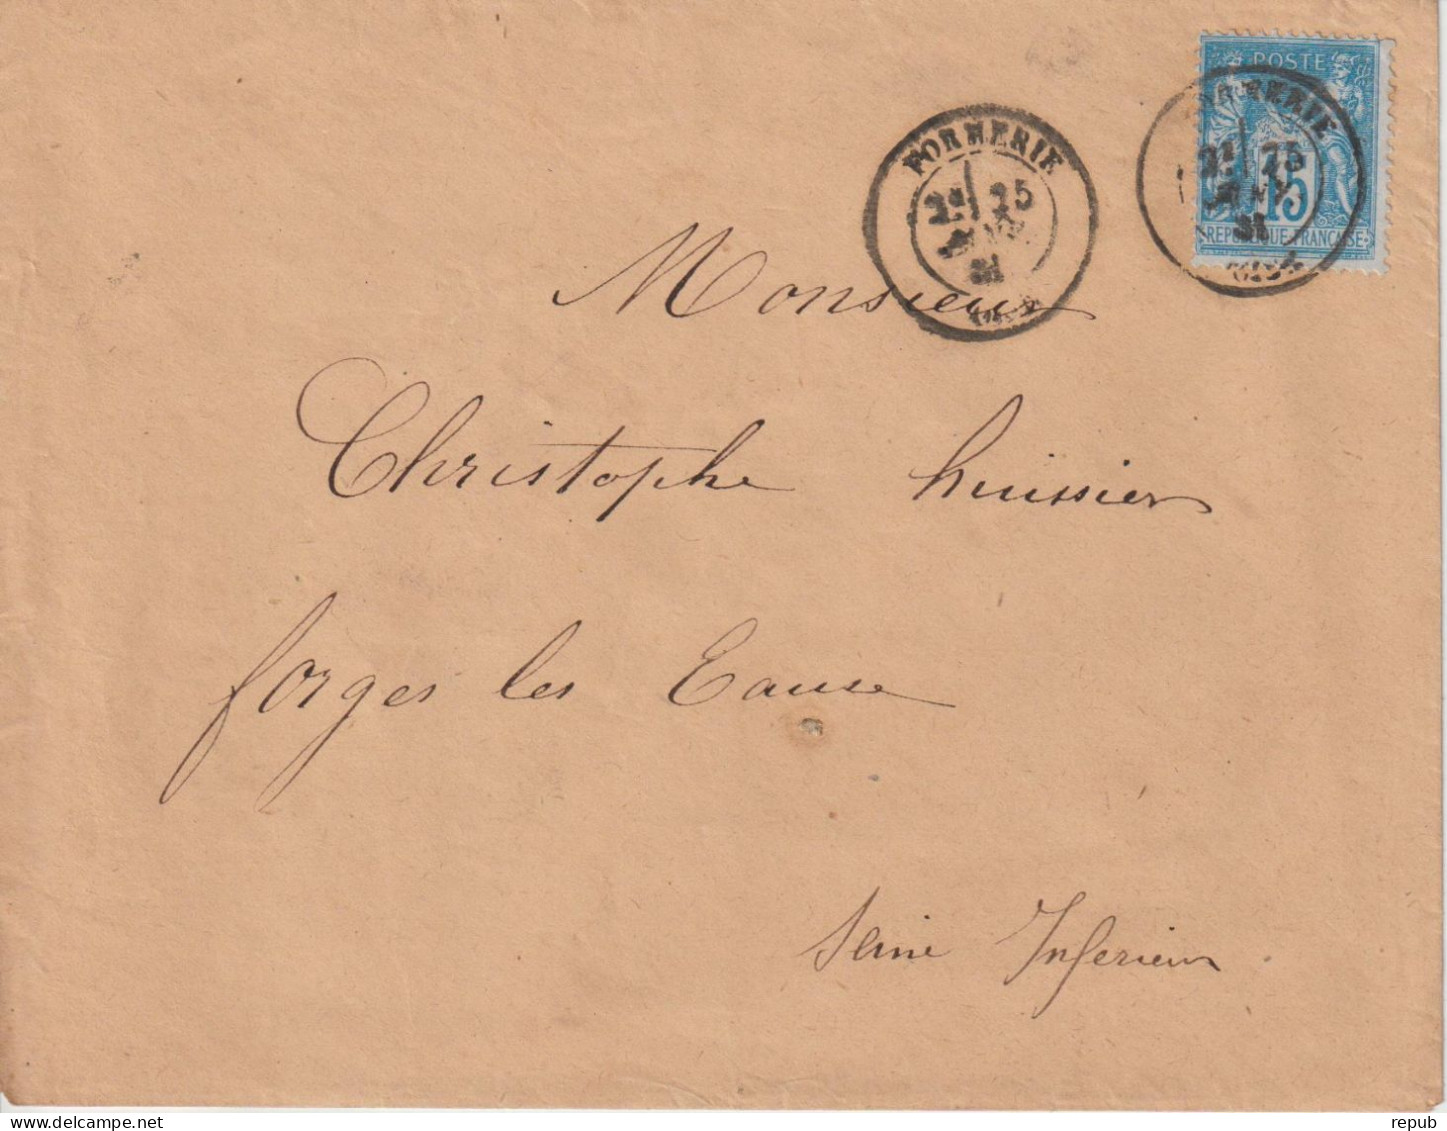 POSTE
15
REPUBLIQUE FRANÇAISE
FORMERIE
25
JANV
81
Monsieur
Christophe huissier
forges les Eaux
Seine Inferieur
delcampe.net
repub